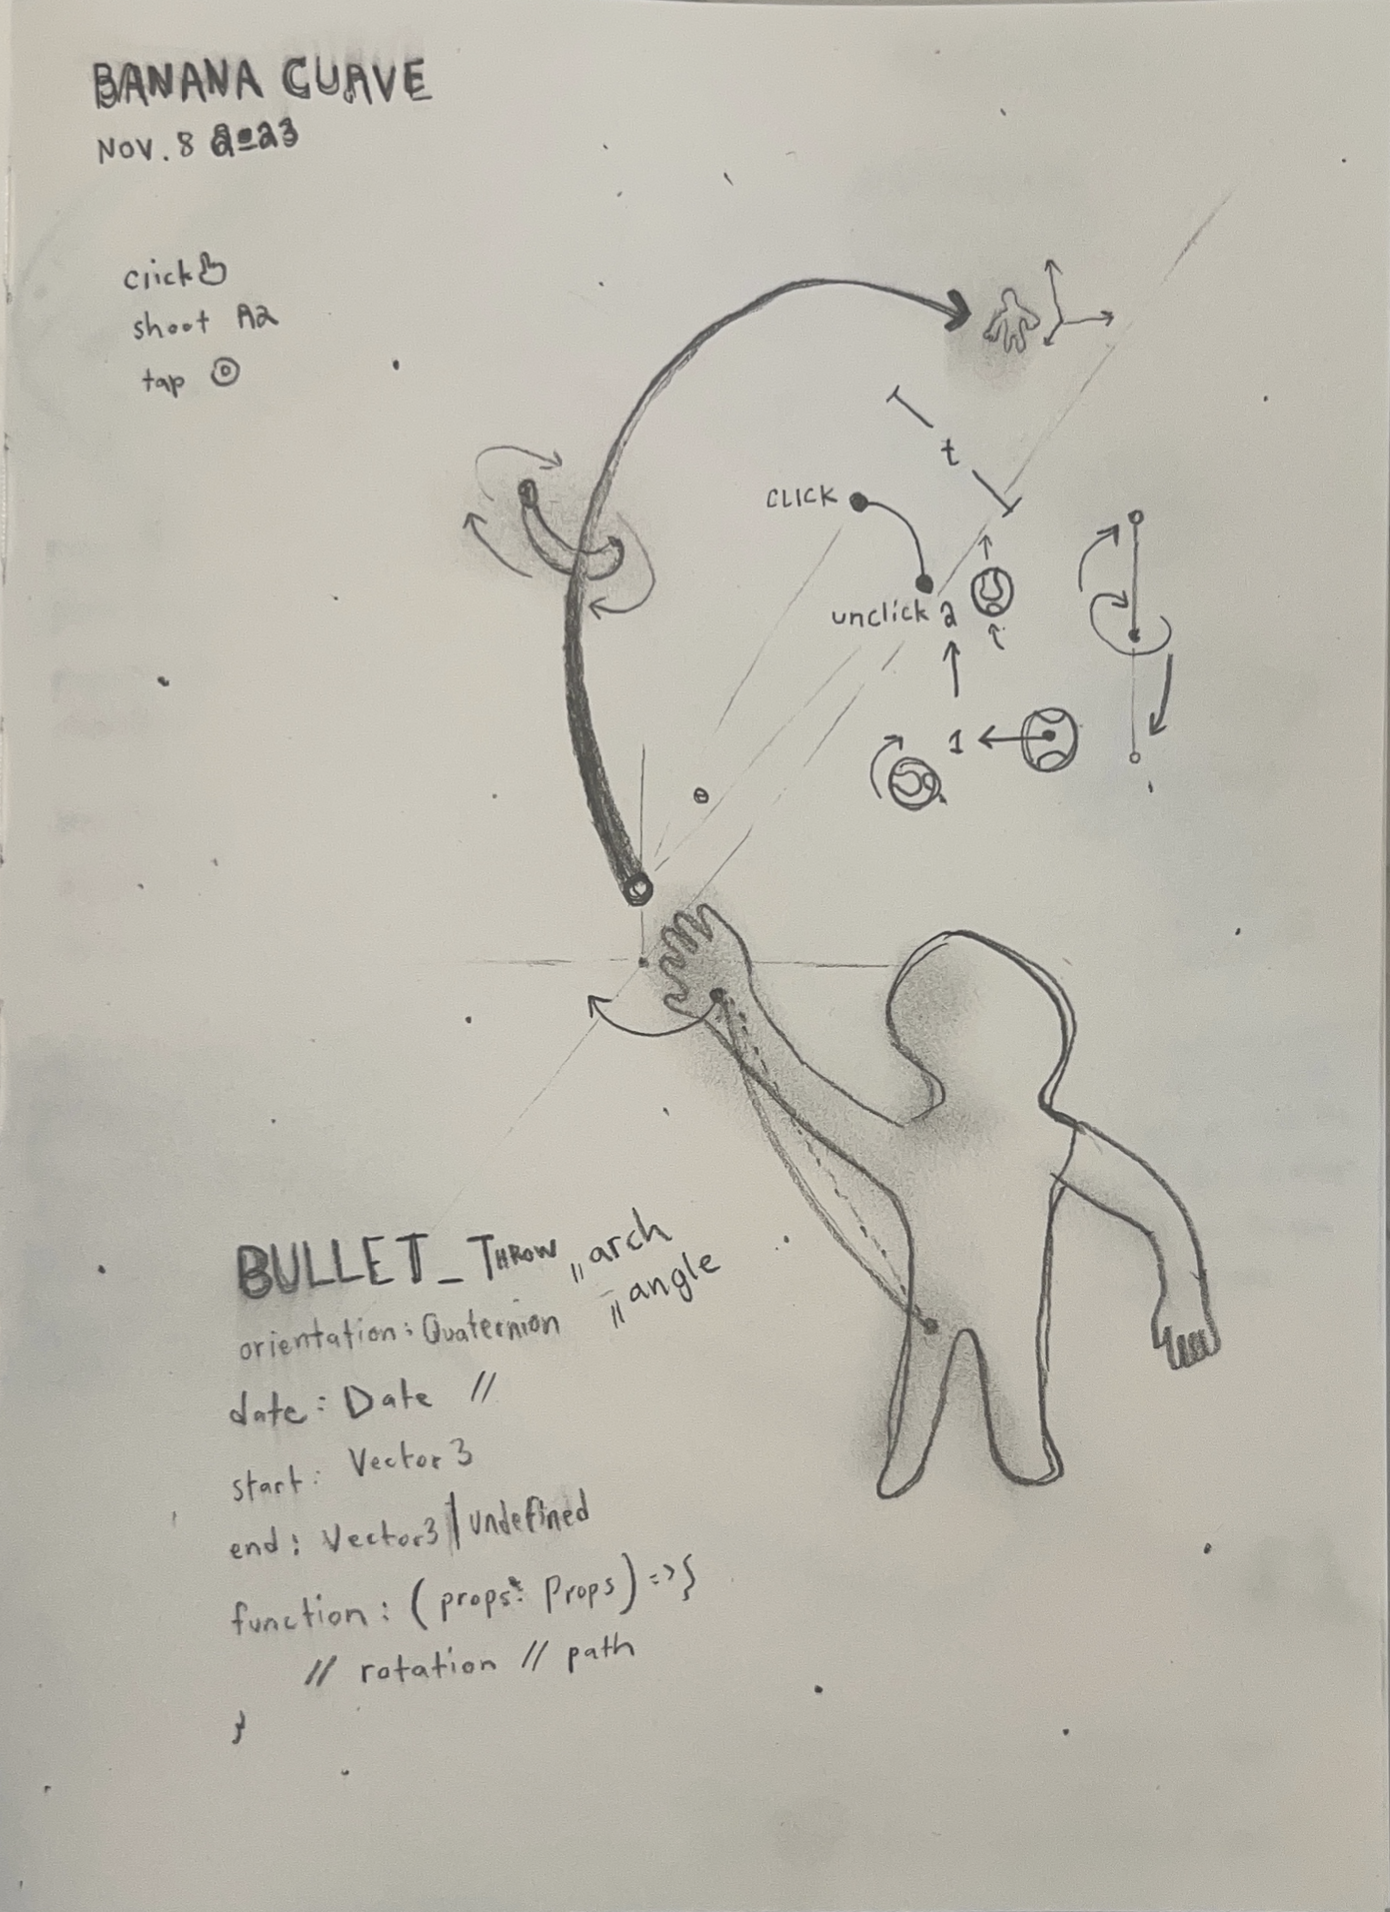 BANANA CURVE
NOV. 8 2023
click
shoot A2
tap
t
CLICK
unclick 2
1
BULLET_THROW // arch
// angle
orientation: Quaternion
date: Date //
start: Vector3
end: Vector3 | undefined
function: (props: Props) => {
// rotation // path
}